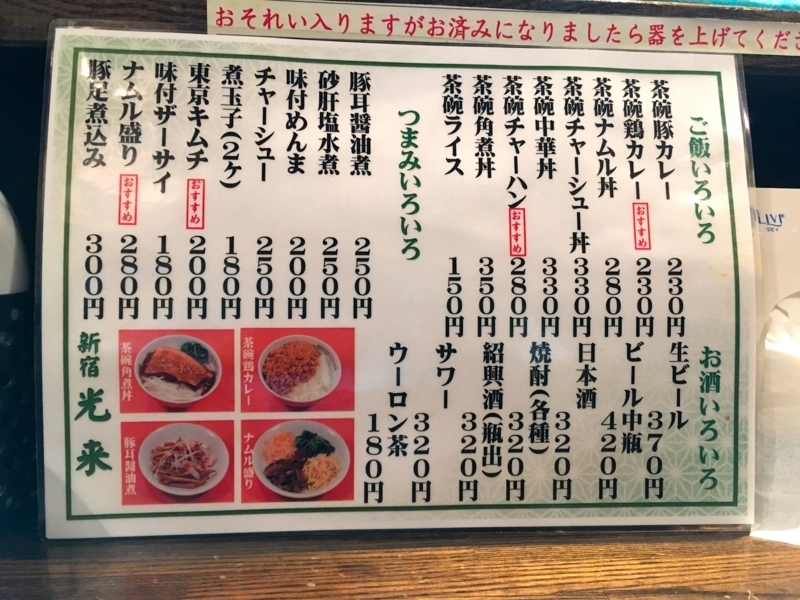 おそれい入りますがお済みになりましたら器を上げてくださ
ご飯いろいろ
茶碗豚カレー 230円
茶碗鶏カレー おすすめ 230円
茶碗ナムル丼 280円
茶碗チャーシュー丼 330円
茶碗中華丼 330円
茶碗チャーハン おすすめ 280円
茶碗角煮丼 350円
茶碗ライス 150円
お酒いろいろ
生ビール 370円
ビール中瓶 420円
日本酒 320円
焼酎(各種) 320円
紹興酒(瓶出) 320円
サワー 320円
ウーロン茶 180円
つまみいろいろ
豚耳醤油煮 250円
砂肝塩水煮 250円
味付めんま 200円
チャーシュー 250円
煮玉子(2ヶ) 180円
東京キムチ おすすめ 200円
味付ザーサイ 180円
ナムル盛り おすすめ 280円
豚足煮込み 300円
茶碗鶏カレー
茶碗角煮丼
ナムル盛り
豚耳醤油煮
新宿 光来
リビィ